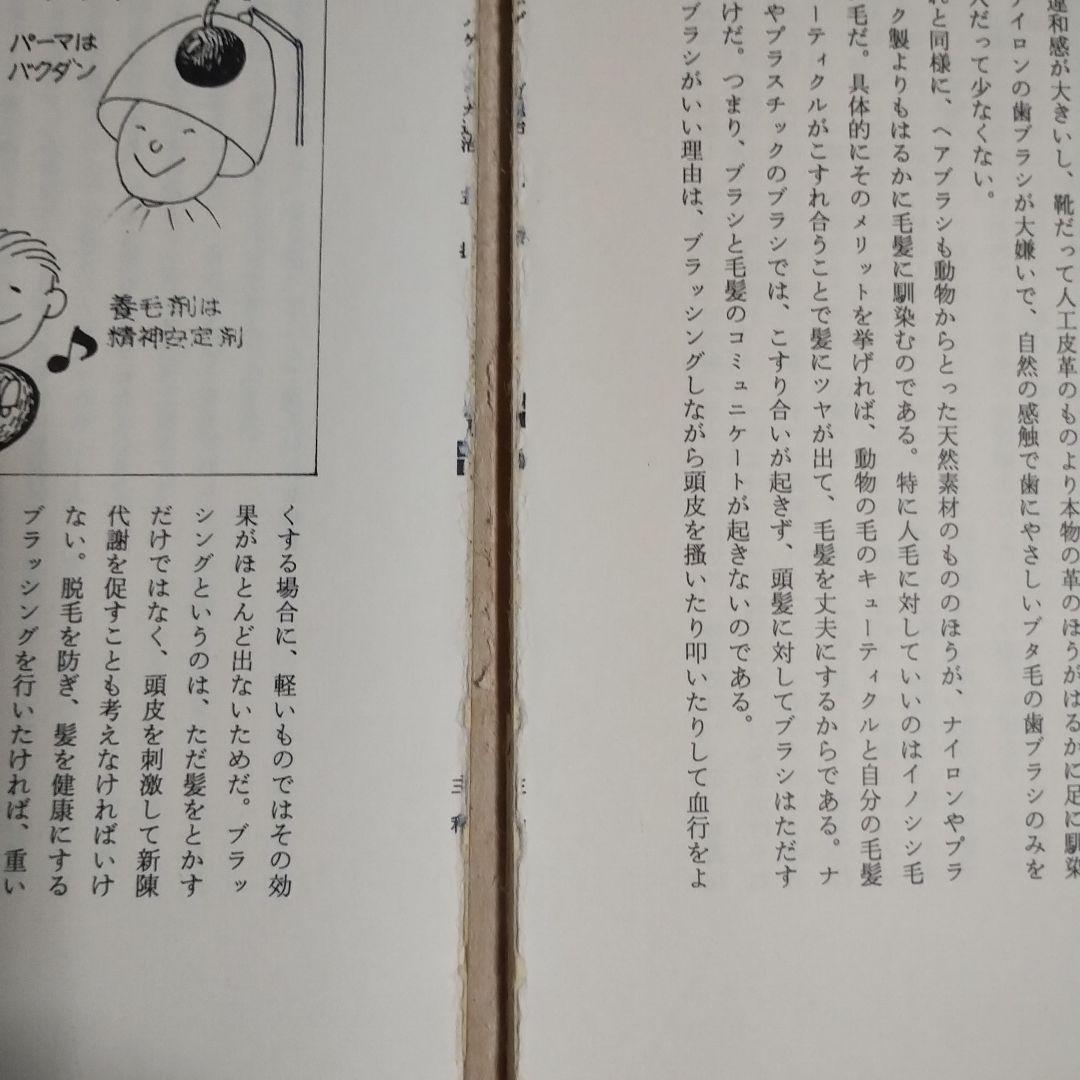 違和感が大きいし、靴だって人工皮革のものより本物の革のほうがはるかに足に馴染
ナイロンの歯ブラシが大嫌いで、自然の感触で歯にやさしいブタ毛の歯ブラシのみを
人だって少なくない。
れと同様に、ヘアブラシも動物からとった天然素材のもののほうが、ナイロンやプラ
ク製よりもはるかに毛髪に馴染むのである。特に人毛に対していいのはイノシシ毛
毛だ。具体的にそのメリットを挙げれば、動物の毛のキューティクルと自分の毛髪
ーティクルがこすれ合うことで髪にツヤが出て、毛髪を丈夫にするからである。ナ
やプラスチックのブラシでは、こすり合いが起きず、頭髪に対してブラシはただす
けだ。つまり、ブラシと毛髪のコミュニケートが起きないのである。
ブラシがいい理由は、ブラッシングしながら頭皮を掻いたり叩いたりして血行をよ
パーマは
バクダン
養毛剤は
精神安定剤
くする場合に、軽いものではその効
果がほとんど出ないためだ。ブラッ
シングというのは、ただ髪をとかす
だけではなく、頭皮を刺激して新陳
代謝を促すことも考えなければいけ
ない。脱毛を防ぎ、髪を健康にする
ブラッシングを行いたければ、重い